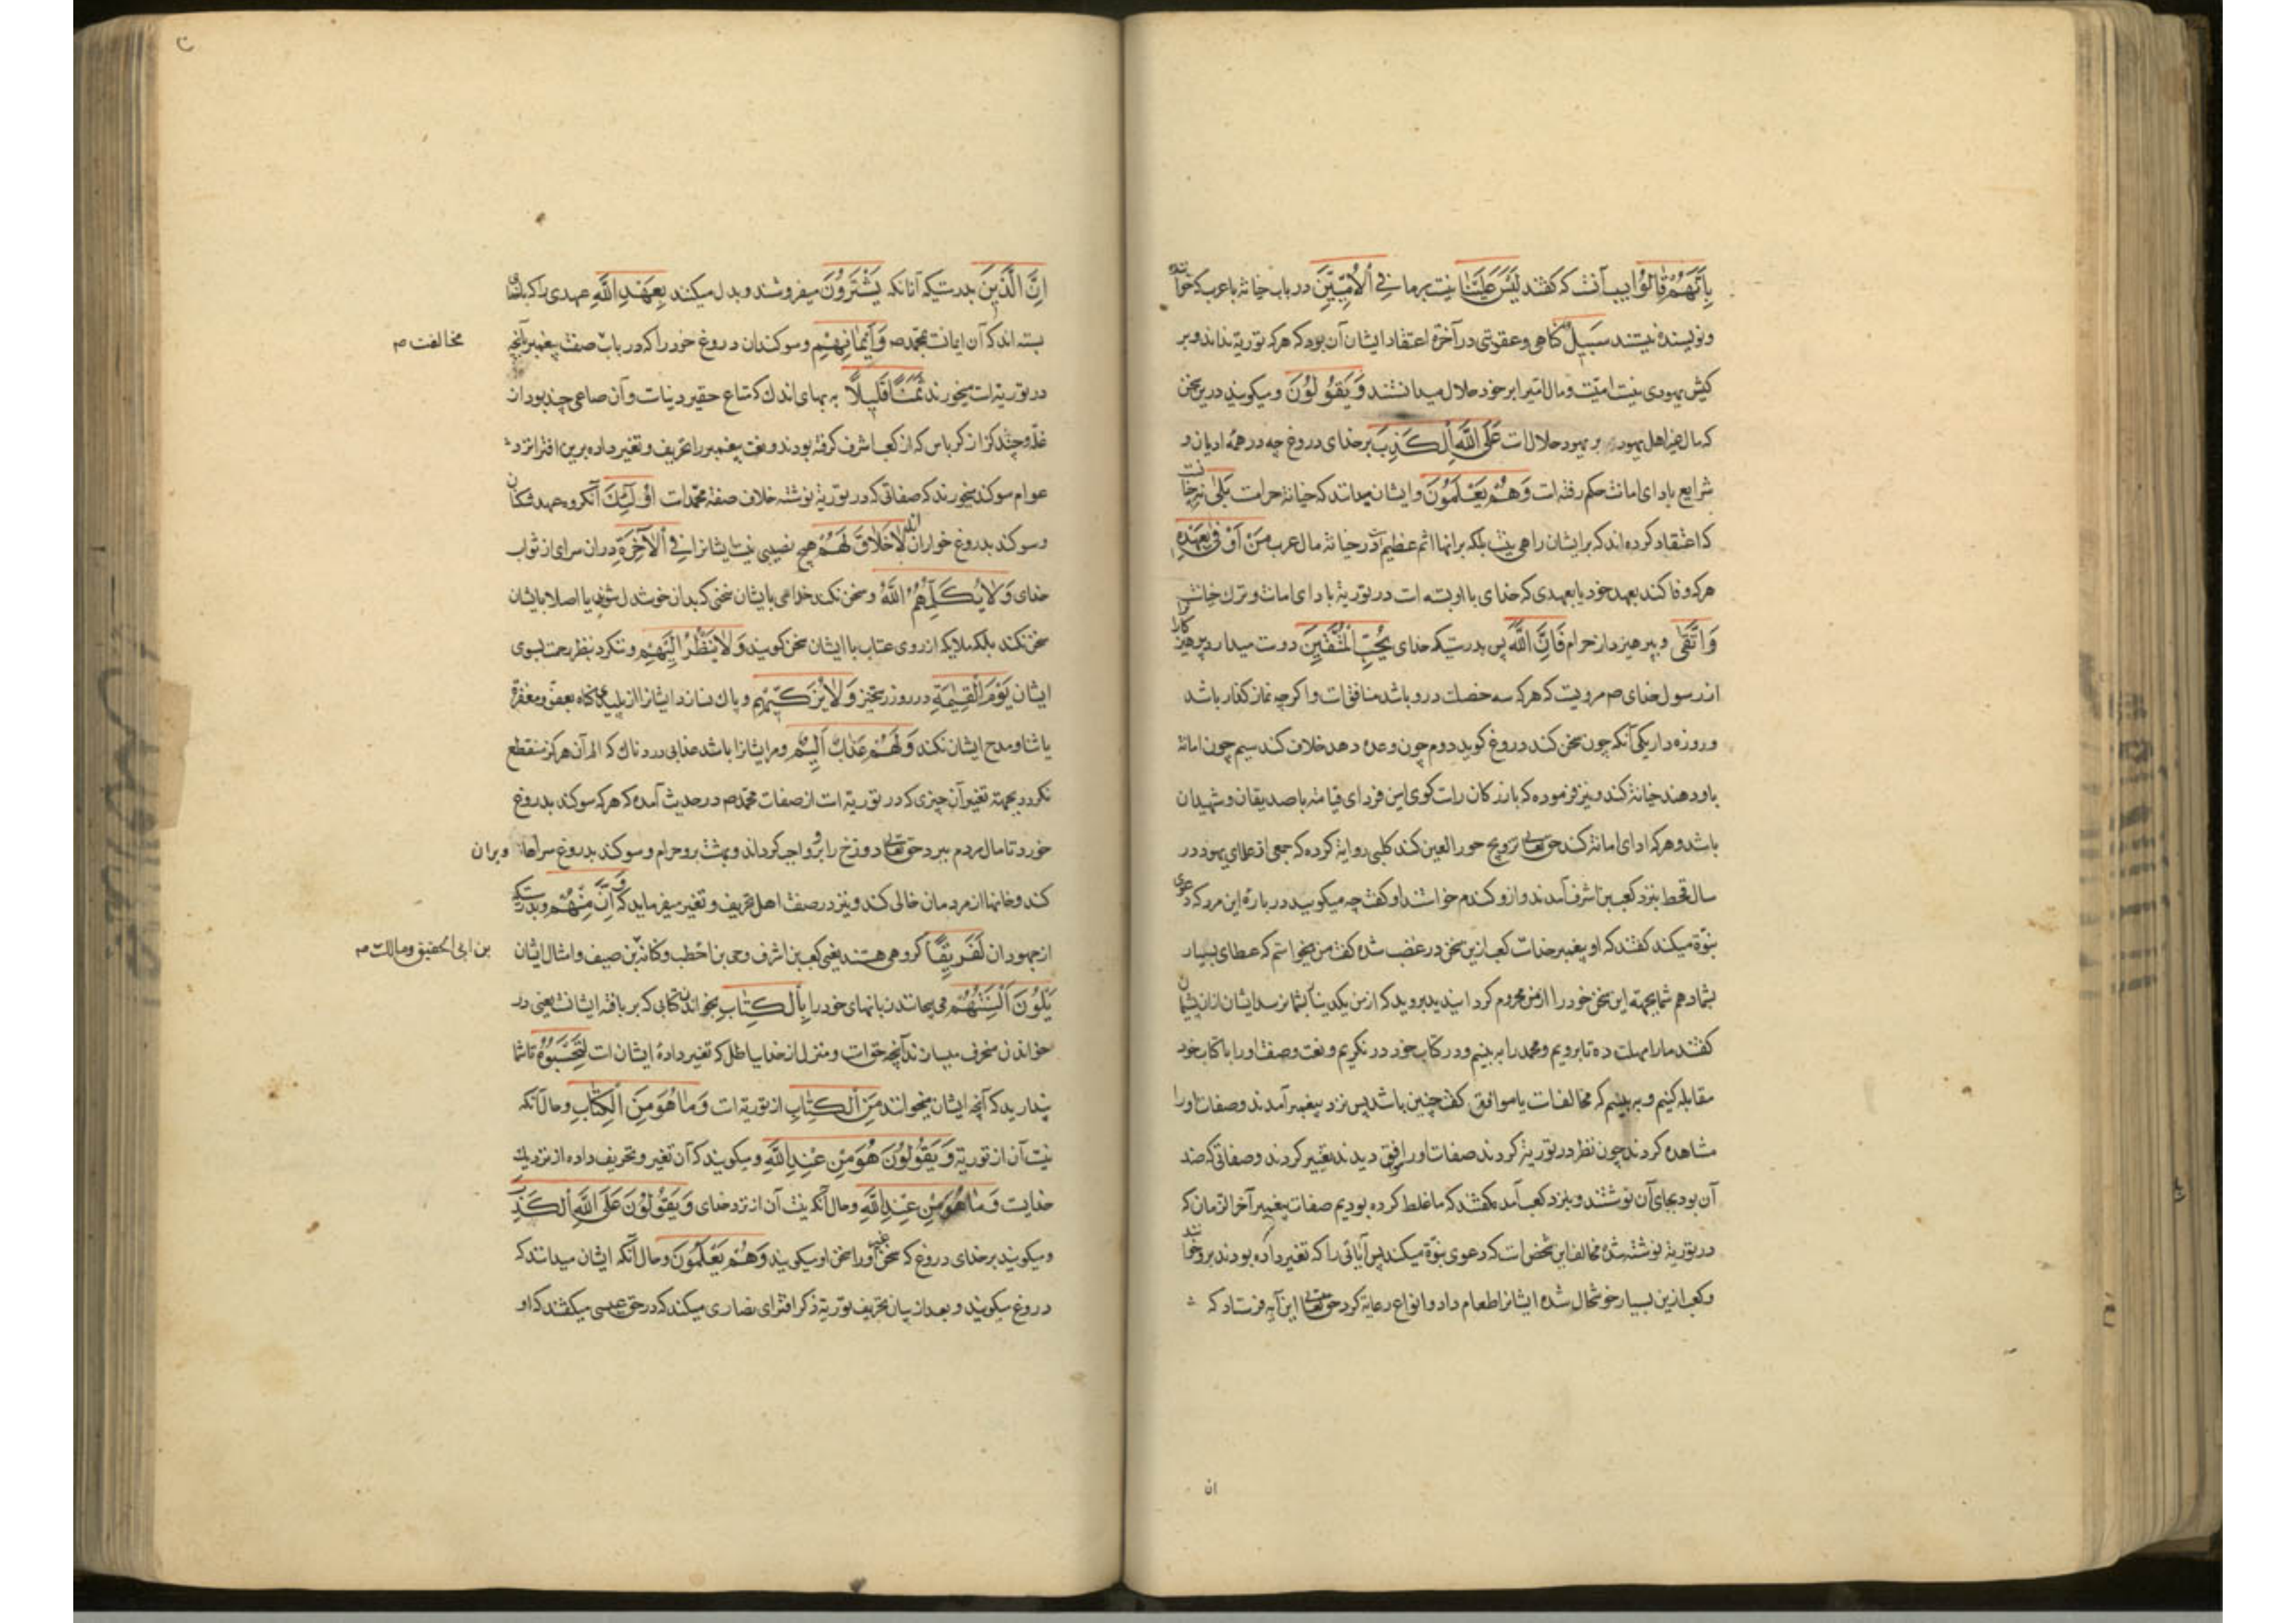 بِاَنَّهُمْ قٰالُوا بسبب آنست که گفتند لَیْسَ عَلَیْنٰا نیست بر ما فِی الْاُمِّیّٖنَ در باب خیانة با عرب که خواننده
و نویسنده نیستند سَبٖیلٌ گناهی و عقوبتی در آخرة اعتقاد ایشان آن بود که هر که توریة نداند و بر
کیش یهودی نیست امیست و مال امیرا بر خود حلال میدانستند وَ یَقُولُونَ و میگویند درین سخن
که مال غیر اهل یهود بر یهود حلالست عَلَی اللّٰهِ الْکَذِبَ بر خدای دروغ چه در همه ادیان و
شرایع بادای امانت حکم رفته است وَ هُمْ یَعْلَمُونَ و ایشان میدانند که خیانة حرامست بَلٰی نه چنانست
که اعتقاد کرده اند که بر ایشان راهی نیست بلکه بر آنها اثم عظیم است در خیانة مال عرب مَنْ اَوْفٰی بِعَهْدِهٖ
هر که وفا کند بعهد خود یا بعهدی که خدای با او بسته است در توریة بادای امانت و ترک خیانت
وَ اتَّقٰی و بپرهیزد از حرام فَاِنَّ اللّٰهَ پس بدرستیکه خدای یُحِبُّ الْمُتَّقٖینَ دوست میدارد پرهیزکارانرا
از رسول خدای ص مرویست که هر که سه خصلت درو باشد منافقست و اگرچه نماز گذار باشد
و روزه دار یکی آنکه چون سخن کند دروغ گوید دوم چون وعده دهد خلاف کند سیم چون امانة
باو دهند خیانة کند و نیز فرموده که بازرگان راست گوی امین فردای قیامة با صدیقان و شهیدان
باشد و هر که ادای امانة کند حق تعالی تزویج حور العین کند کلبی روایة کرده که جمعی از علمای یهود در
سال قحط بنزد کعب بن اشرف آمدند و ازو گندم خواستند او گفت چه میگویید در باره این مرد که دعوی
نبوّة میکند گفتند که او پیغمبر خداست کعب ازین سخن در غضب شده گفت من میخواستم که عطای بسیار
بشما دهم شما بجهة این سخن خود را از من محروم گردانیدید بروید که از من یک دینار بشما نرسد ایشان ازان پشیمان
گفتند ما را مهلت ده تا برویم و محمد را به بینیم و در کتاب خود در نگریم و نعت و صفت او را با کتاب خود
مقابله کنیم و ببینیم که مخالفست یا موافق گفت چنین باشد پس نزد پیغمبر آمدند و صفات او را
مشاهده کردند چون نظر در توریة کردند صفات او را موافق دیدند تغییر کردند و صفاتی که ضد
آن بود بجای آن نوشتند و بنزد کعب آمده گفتند که ما غلط کرده بودیم صفات پیغمبر آخر الزمان که
در توریة نوشته شده مخالف این شخص است که دعوی نبوّة میکند پس آیاتی را که تغییر داده بودند برو خواندند
و کعب ازین بسیار خوشحال شده ایشانرا طعام داد و انواع رعایة کرد حق تعالی این آیه فرستاد که
ان
اِنَّ الَّذٖینَ بدرستیکه آنانکه یَشْتَرُونَ میفروشند و بدل میکنند بِعَهْدِ اللّٰهِ عهدی را که با خدا
بسته اند که آن ایمانست بمحمد ص وَ اَیْمٰانِهِمْ و سوکندان دروغ خود را که در باب صفت پیغمبر آنچه
مخالفت ص
در توریة است میخورند ثَمَناً قَلٖیلاً به بهای اندک که متاع حقیر دنیاست و آن صاعی چند بود از
غلّه و چند گز از کرباس که از کعب اشرف گرفته بودند و نعت پیغمبر را تحریف و تغییر داده برین افترا نزد
عوام سوکند میخورند که صفاتی که در توریة نوشته خلاف صفة محمّدست اُولٰئِکَ آنکروه عهد شکنان
و سوکند بدروغ خواران لٰا خَلٰاقَ لَهُمْ هیچ نصیبی نیست ایشانرا فِی الْاٰخِرَةِ دران سرای از ثواب
خدای وَ لٰا یُکَلِّمُهُمُ اللّٰهُ و سخن نکند خدای با ایشان سخنی که بدان خوشدل شوند یا اصلا با ایشان
سخن نکند بلکه ملایکه از روی عتاب با ایشان سخن گویند وَ لٰا یَنْظُرُ اِلَیْهِمْ و ننگرد بنظر رحمت بسوی
ایشان یَوْمَ الْقِیٰمَةِ در روز رستخیز وَ لٰا یُزَکّٖیهِمْ و پاک نسازد ایشانرا از پلیدی گناه بعفو و مغفرة
یا ثنا و مدح ایشان نکند وَ لَهُمْ عَذٰابٌ اَلٖیمٌ و مر ایشانرا باشد عذابی دردناک که الم آن هرگز منقطع
نکردد بجهة تغییر آن چیزی که در توریة است از صفات محمد ص در حدیث آمده که هر که سوکند بدروغ
خورد تا مال مردم ببرد حق تعالی دوزخ را برو واجب گرداند و بهشت برو حرام و سوکند بدروغ سراها
ویران
کند و خانها از مردمان خالی کند و نیز در صفت اهل تحریف و تغییر میفرماید که وَ اِنَّ مِنْهُمْ و بدرستیکه
از جهودان لَفَرٖیقاً گروهی هستند یعنی کعب بن اشرف و حی بن اخطب و کنانه بن صیف و امثال ایشان
بن ابی الحقیق و مالک ص
یَلْوُنَ اَلْسِنَتَهُمْ می پیچانند زبانهای خود را بِالْکِتٰابِ بخواندن کتابی که بر بافته ایشانست یعنی در
خواندن منحرف میسازند آنچه حق است و منزل از خدا بباطل که تغییر داده ایشانست لِتَحْسَبُوهُ تا شما
پندارید که آنچه ایشان میخوانند مِنَ الْکِتٰابِ از توریة است وَ مٰا هُوَ مِنَ الْکِتٰابِ و حال آنکه
نیست آن از توریة وَ یَقُولُونَ هُوَ مِنْ عِنْدِ اللّٰهِ و میگویند که آن تغییر و تحریف داده از نزدیک
خدایست وَ مٰا هُوَ مِنْ عِنْدِ اللّٰهِ و حال آنکه نیست آن از نزد خدای وَ یَقُولُونَ عَلَی اللّٰهِ الْکَذِبَ
و میگویند بر خدای دروغ که سخن غیر او را سخن او میگویند وَ هُمْ یَعْلَمُونَ و حال آنکه ایشان میدانند که
دروغ میگویند و بعد از بیان تحریف توریة ذکر افترای نصاری میکند که در حق عیسی میگفتند که او